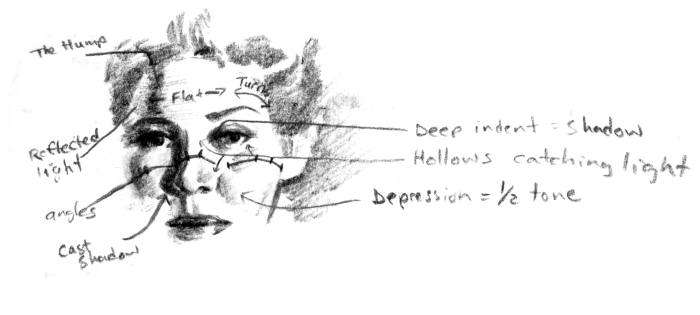 The Hump
Flat
Turn
Reflected
light
angles
Cast
Shadow
Deep indent = Shadow
Hollows catching light
Depression = 1/2 tone